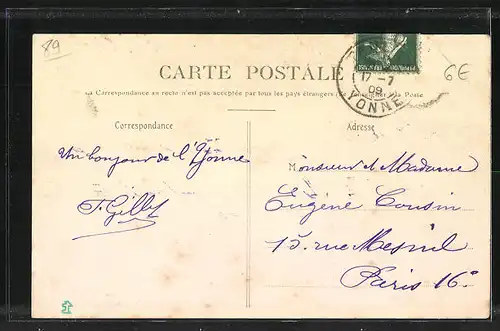 89
CARTE POSTALE
6€
17-7
09
YONNE
La Correspondance au recto n'est pas acceptée par tous les pays étrangers la Poste
Correspondance
Adresse
Un bonjour de l'Yonne
Monsieur et Madame
Eugène Cousin
15, rue Mesnil
Paris 16e